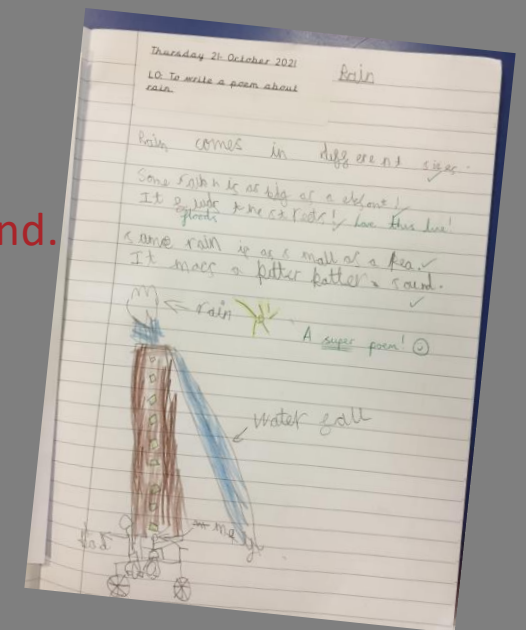 nd.
Thursday 21 October 2021
Rain
LO: To write a poem about
rain.
Rain comes in different sizes.
Some rain is as big as a
It the I love this line!
floods
some rain is as small as a Pea.
It macs a pitter patter sound.
rain
A super poem!
water fall
me